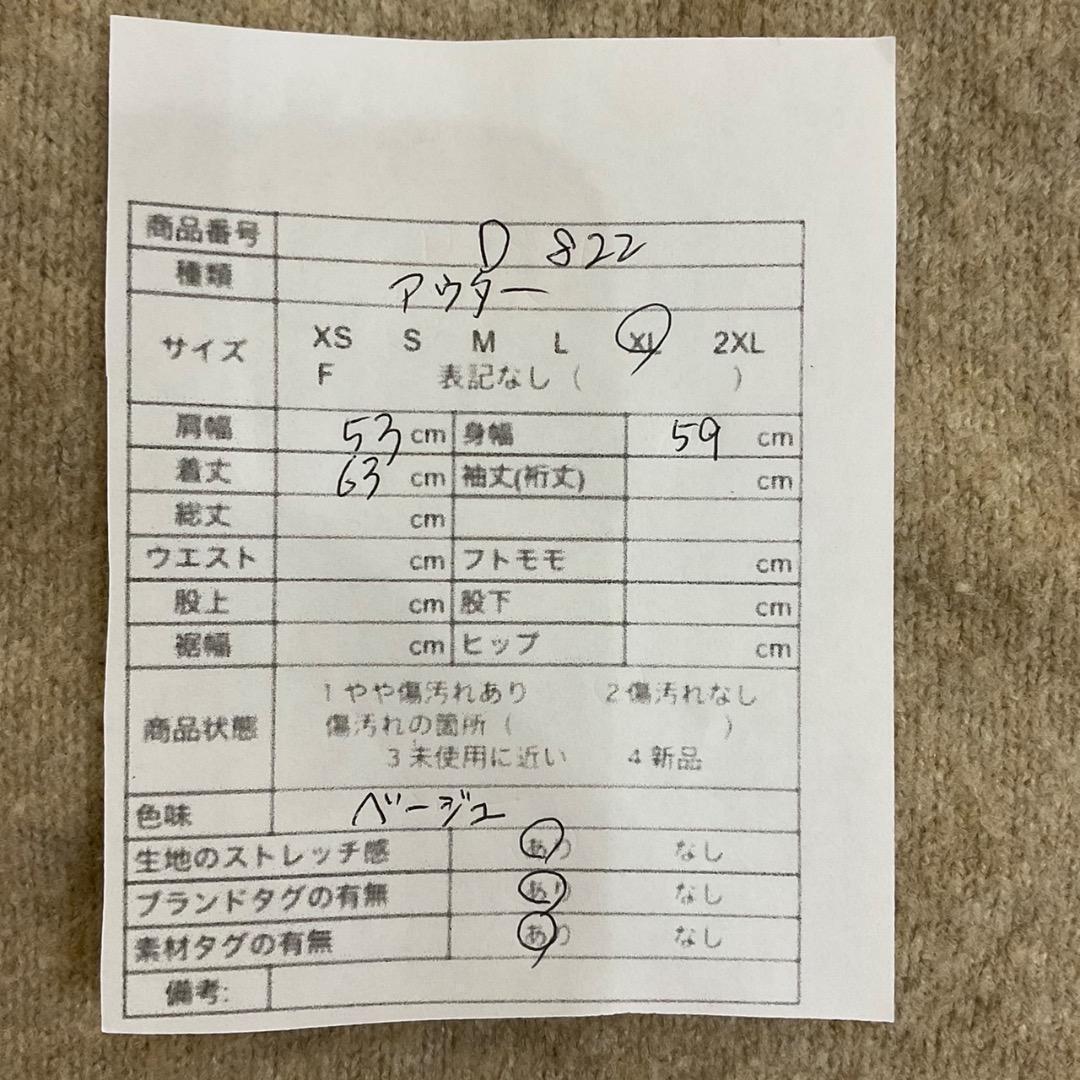 商品番号 D 822
種類 アウター
サイズ XS S M L XL 2XL
F 表記なし ( )
肩幅 53 cm 身幅 59 cm
着丈 63 cm 袖丈(裄丈) cm
総丈 cm
ウエスト cm フトモモ cm
股上 cm 股下 cm
裾幅 cm ヒップ cm
商品状態 1 やや傷汚れあり 2 傷汚れなし
傷汚れの箇所 ( )
3 未使用に近い 4 新品
色味 ベージュ
生地のストレッチ感 あり なし
ブランドタグの有無 あり なし
素材タグの有無 あり なし
備考: